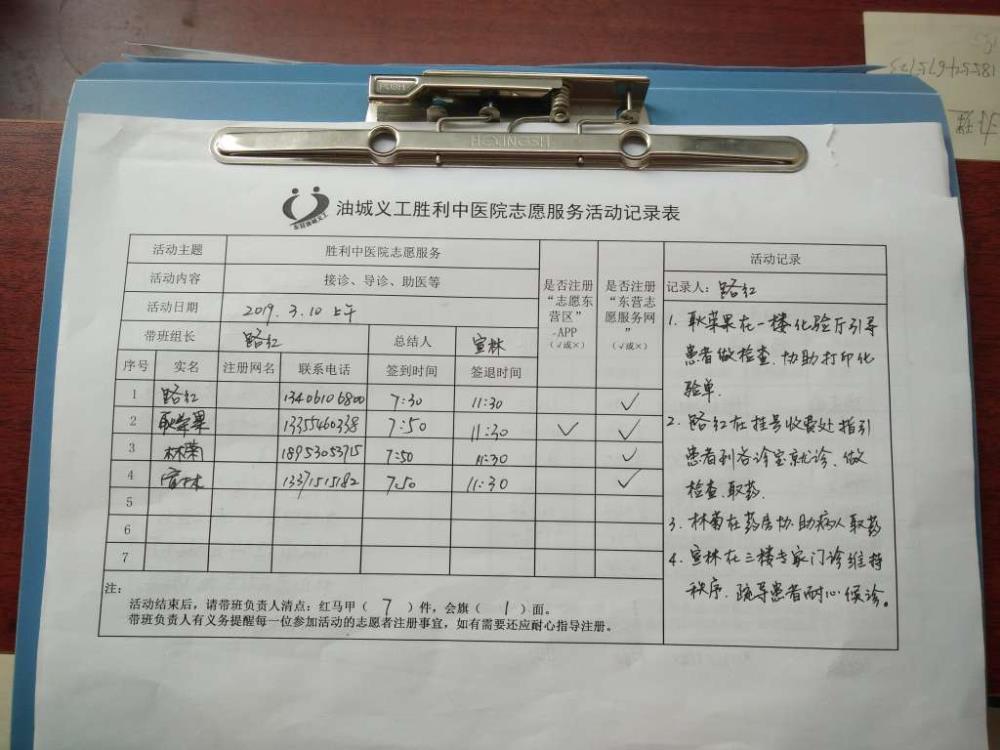 PUSH
HEYINGSH
东营油城义工
油城义工胜利中医院志愿服务活动记录表
活动主题 胜利中医院志愿服务
活动内容 接诊、导诊、助医等
活动日期 2019.3.10 上午
带班组长 路红 总结人 宣林
是否注册“志愿东营区”-APP（√或×）
是否注册“东营志愿服务网”（√或×）
序号 实名 注册网名 联系电话 签到时间 签退时间
1 路红 13406106800 7:30 11:30 √
2 耿荣果 13355460338 7:50 11:30 √ √
3 林菊 18953053715 7:50 11:30 √
4 宣林 13371515182 7:50 11:30 √
5
6
7
注：
活动结束后，请带班负责人清点：红马甲（ 7 ）件，会旗（ 1 ）面。
带班负责人有义务提醒每一位参加活动的志愿者注册事宜，如有需要还应耐心指导注册。
活动记录
记录人：路红
1. 耿荣果在一楼化验厅引导
患者做检查，协助打印化
验单.
2. 路红在挂号收费处指引
患者到各诊室就诊、做
检查、取药.
3. 林菊在药房协助病人取药
4. 宣林在三楼专家门诊维持
秩序，疏导患者耐心候诊。